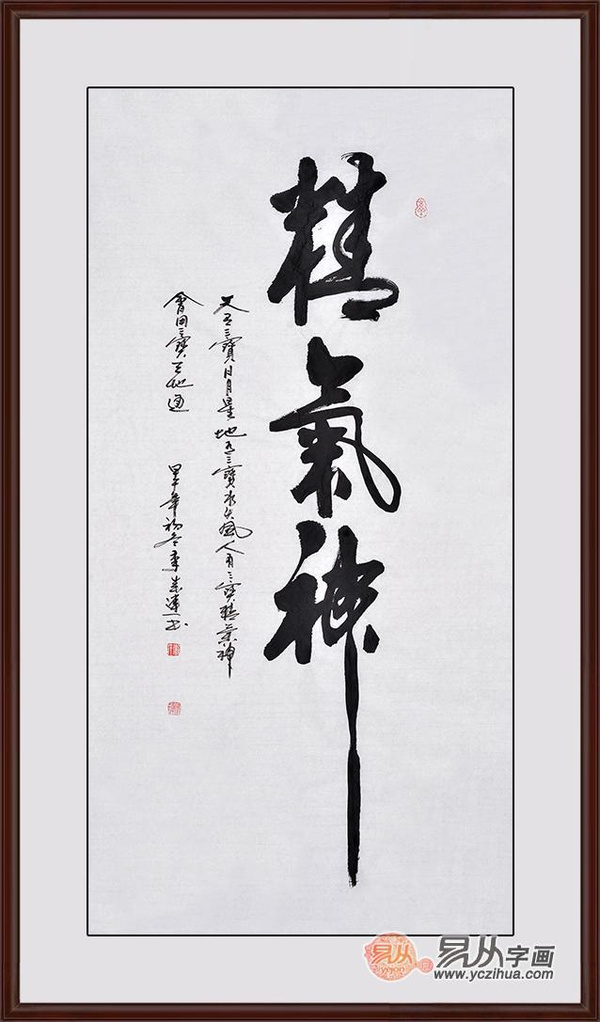 精氣神
天有三寶日月星地有三寶水火風人有三寶精氣神
會用三寶天地通
年初冬李成連書
易从字画
www.yczihua.com
yczihua.com